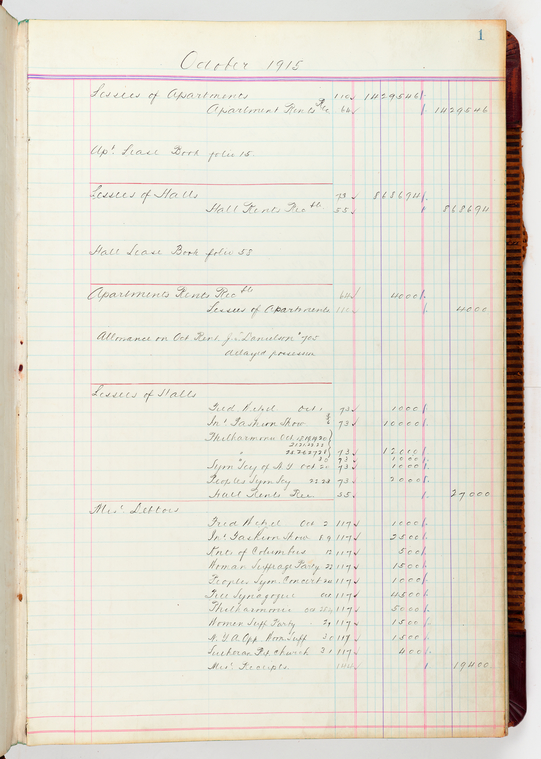 1
October 1915
Lessees of Apartments 110 1429546
Apartment Rents Rec 64 1429546
Apt Lease Book folio 15
Lessees of Halls 73 868694
Hall Rents Recble 55 868694
Hall Lease Book folio 53
Apartments Rents Recble 64 4000
Lessees of Apartments 110 4000
Allowance on Oct Rent J. Danielson 705
delayed possession
Lessees of Halls
Fred Oct 1 73 1000
Int Fashion Show 73 10000
Philharmonic Oct
73 12000
30 73 1000
Sym Socy of N.Y. Oct 20 73 1000
Peoples Sym Socy 73 2000
Hall Rents Rec 55 27000
Misc Debtors
Fred Oct 2 117 1000
Int Fashion Show 8 9 117 2500
Knts of Columbus 12 117 500
Woman Suffrage Party 22 117 1500
Peoples Sym. Concert 117 1000
Free Synagogue Oct 117 4500
Philharmonic Oct 117 5000
Women Suff Party 29 117 1500
N.Y.A. Opp. Wom Suff 30 117 1500
Lutheran Church 31 117 400
Misc Receipts 19400